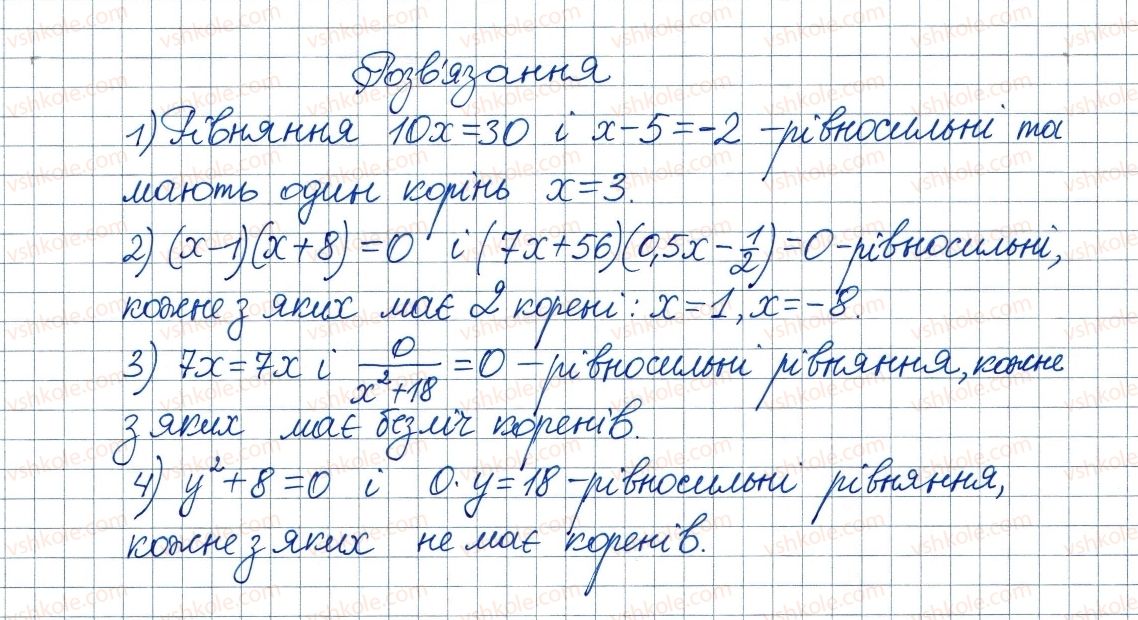 Розв'язання
1) Рівняння 10x=30 і x-5=-2 -рівносильні та
мають один корінь x=3.
2) (x-1)(x+8)=0 і (7x+56)(0,5x-1/2)=0-рівносильні,
кожне з яких має 2 корені: x=1, x=-8.
3) 7x=7x і 0/(x²+18)=0 -рівносильні рівняння, кожне
з яких має безліч коренів.
4) y²+8=0 і 0·y=18-рівносильні рівняння,
кожне з яких не має коренів.